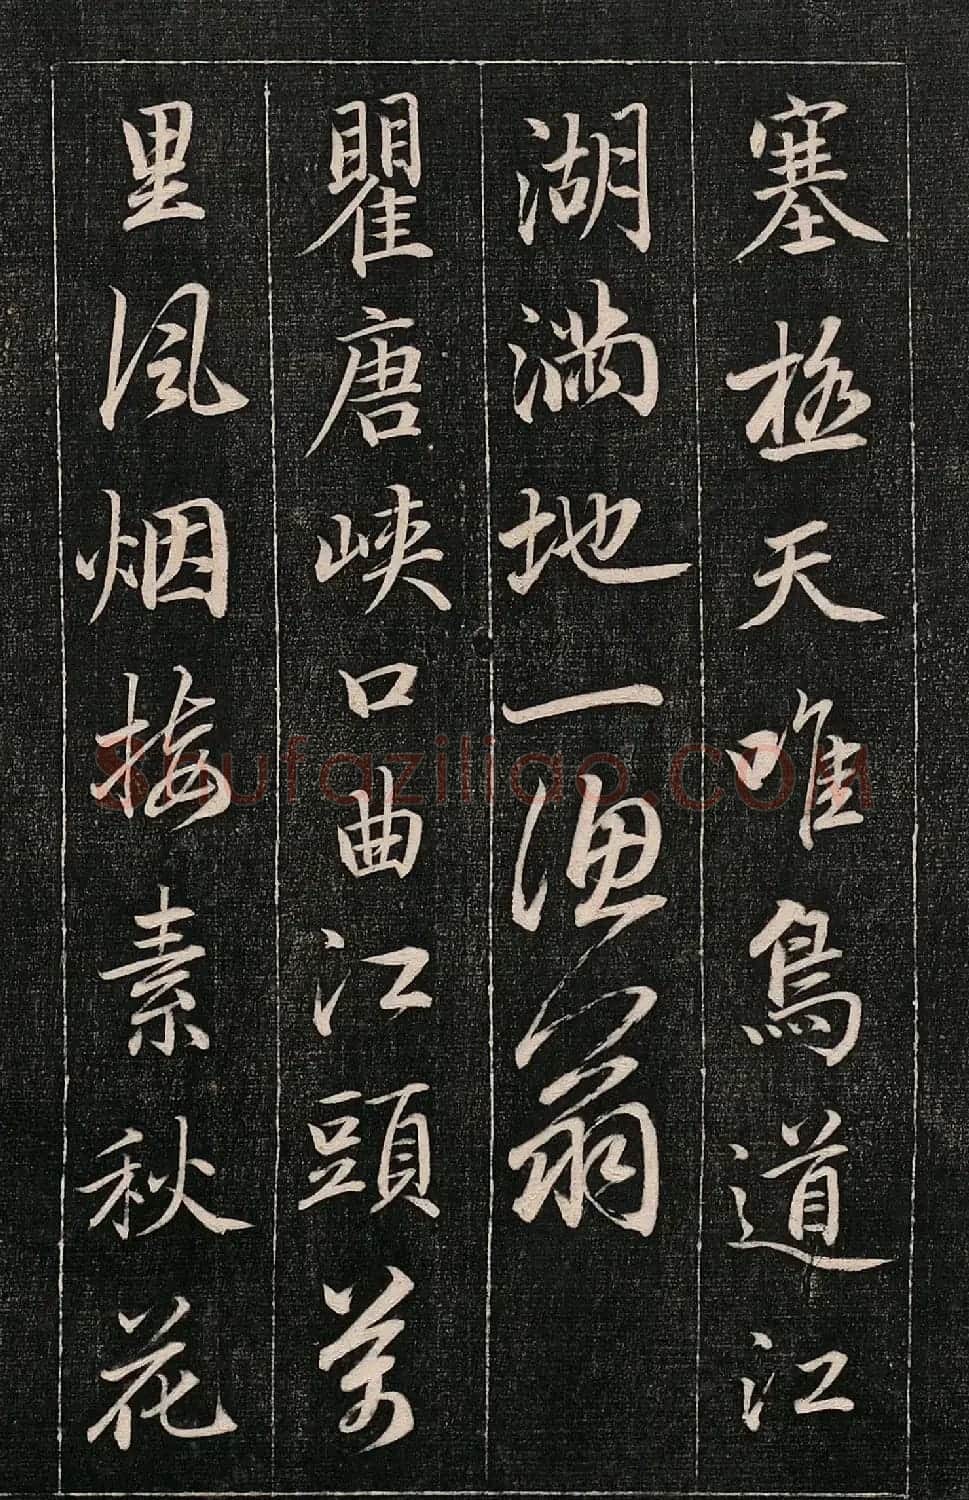 塞極天唯鳥道江
湖満地一漁翁
瞿唐峽口曲江頭萬
里風烟接素秋花
Shufaziliao.COM